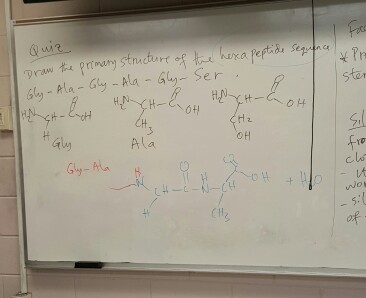 Quiz
Draw the primary structure of the hexapeptide sequence
Gly - Ala - Gly - Ala - Gly - Ser.
H2N CH - C O OH H
H2N CH - C O OH CH3
H2N CH - C O OH CH2 OH
Gly Ala
Gly-Ala
H N CH - C O N H CH C O OH + H2O
H CH3
Fac
* Pr
ster
Sil
fro
clo
wo
- sil
of